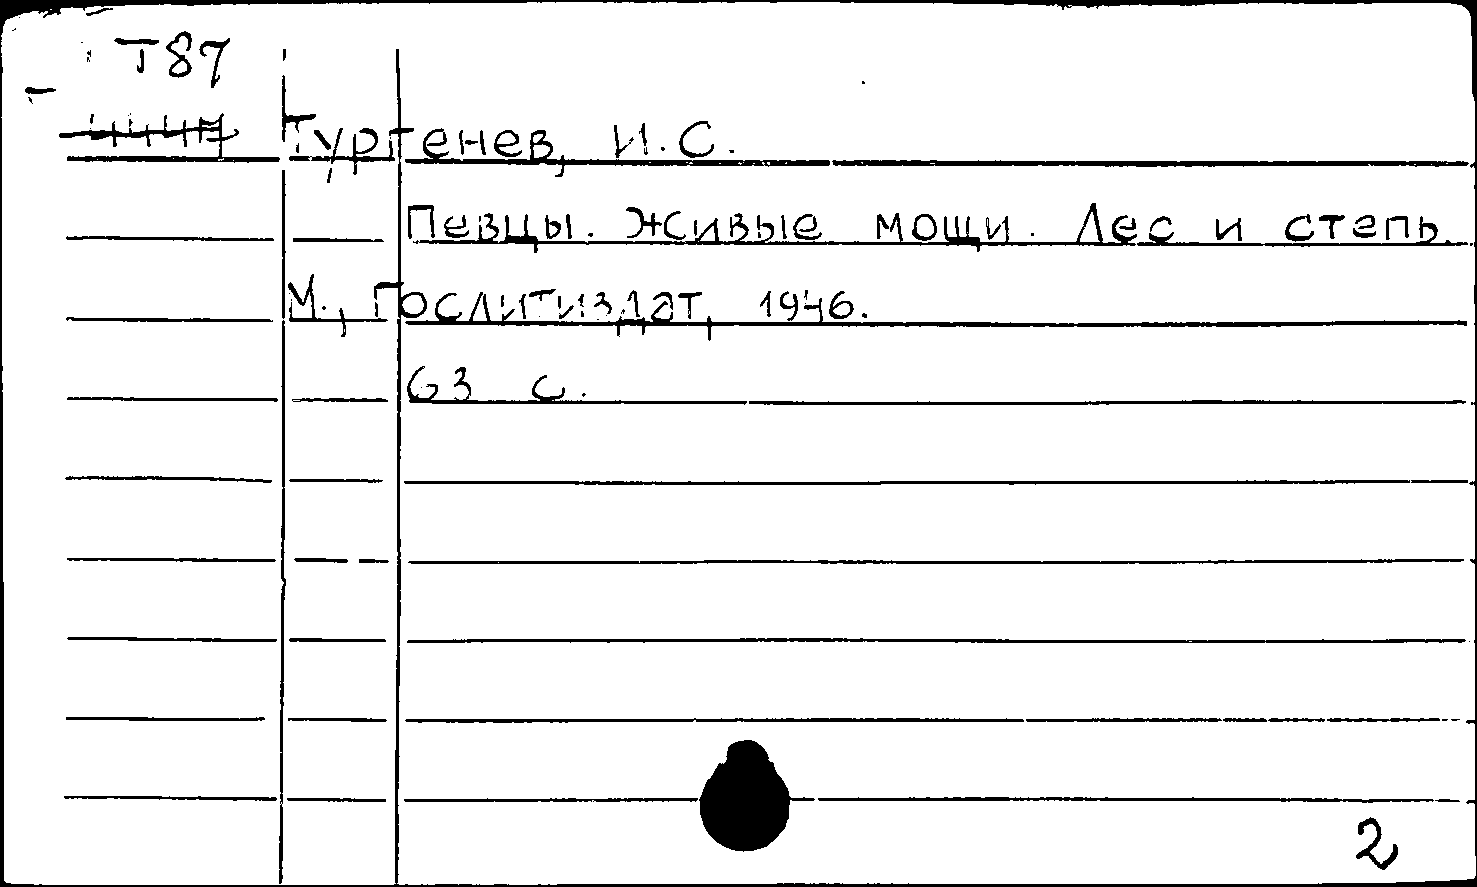 Т87
Тургенев, И.С.
Певцы. Живые мощи. Лес и степь.
М., Гослитиздат, 1946.
63 с.
2